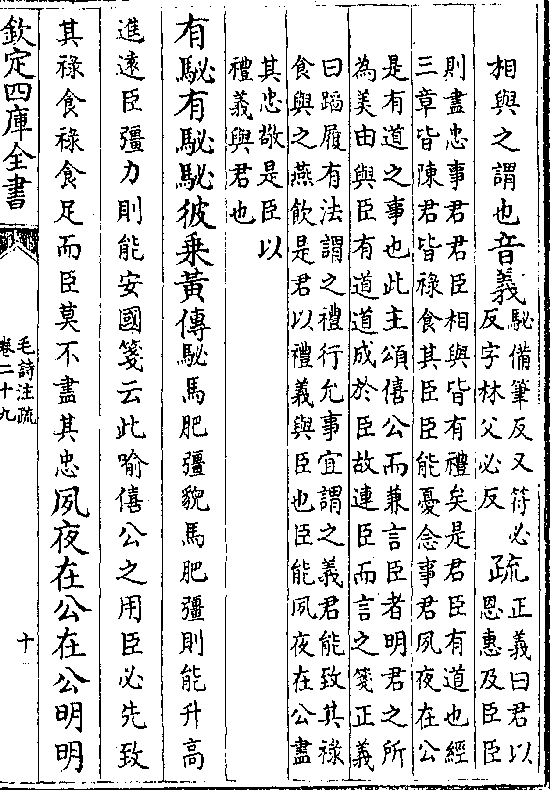 相與之謂也音義駜備筆反又符必
反字林父必反疏正義曰君以
恩惠及臣臣
則盡忠事君君臣相與皆有禮矣是君臣有道也經
三章皆陳君皆祿食其臣臣能憂念事君夙夜在公
是有道之事也此主頌僖公而兼言臣者明君之所
為美由與臣有道道成於臣故連臣而言之箋正義
曰蹈履有法謂之禮行允事宜謂之義君能致其祿
食與之燕飲是君以禮義與臣也臣能夙夜在公盡
其忠敬是臣以
禮義與君也
有駜有駜駜彼乗黃傳駜馬肥彊貌馬肥彊則能升高
進逺臣彊力則能安國箋云此喻僖公之用臣必先致
其祿食祿食足而臣莫不盡其忠夙夜在公在公明明
欽定四庫全書
毛詩注疏
卷二十九
十